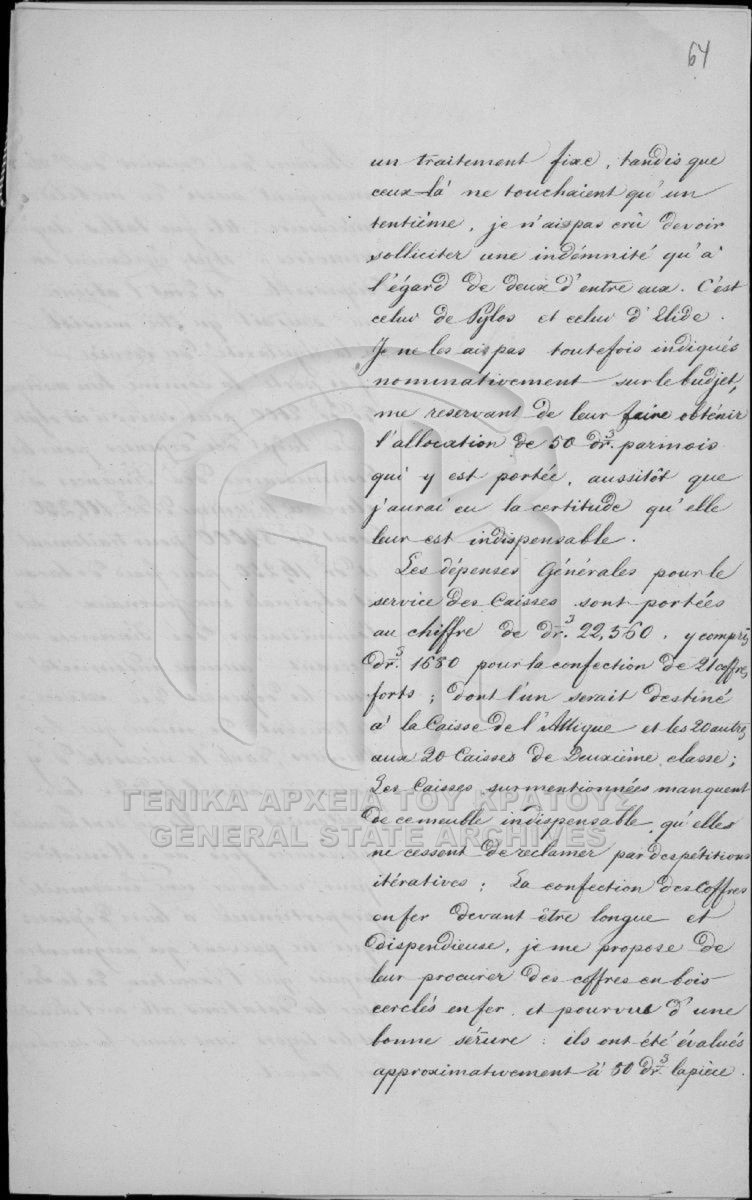 64
un traitement fixe, tandis que
ceux-là ne touchaient qu'un
tentième, je n'ais pas crû devoir
solliciter une indémnité qu'à
l'égard de deux d'entre aux. C'est
celui de Pylos et celui d'Elide.
Je ne les ais pas toutefois indiqués
nominativement sur le budjet,
me reservant de leur faire obténir
l'allocation de 50 dr.s par mois
qui y est portée, aussitôt que
j'aurai eu la certitude qu'elle
leur est indispensable.
Les dépenses Générales pour le
service des Caisses sont portées
au chiffre de dr.s 22,560, y compris
dr.s 1680 pour la confection de 21 coffres
forts; dont l'un serait destiné
à la Caisse de l'Attique et les 20 autres
aux 20 Caisses de Deuxième classe;
Les Caisses surmentionnées manquent
de ce meuble indispensable, qu'elles
ne cessent de reclamer par des pétitions
itératives; La confection des Coffres
en fer devant être longue et
dispendieuse, je me propose de
leur procurer des coffres en bois
cerclés en fer, et pourvus d'une
bonne serrure: ils ont été évalués
approximativement à 50 dr.s la pièce.
ΓΕΝΙΚΑ ΑΡΧΕΙΑ ΤΟΥ ΚΡΑΤΟΥΣ
GENERAL STATE ARCHIVES